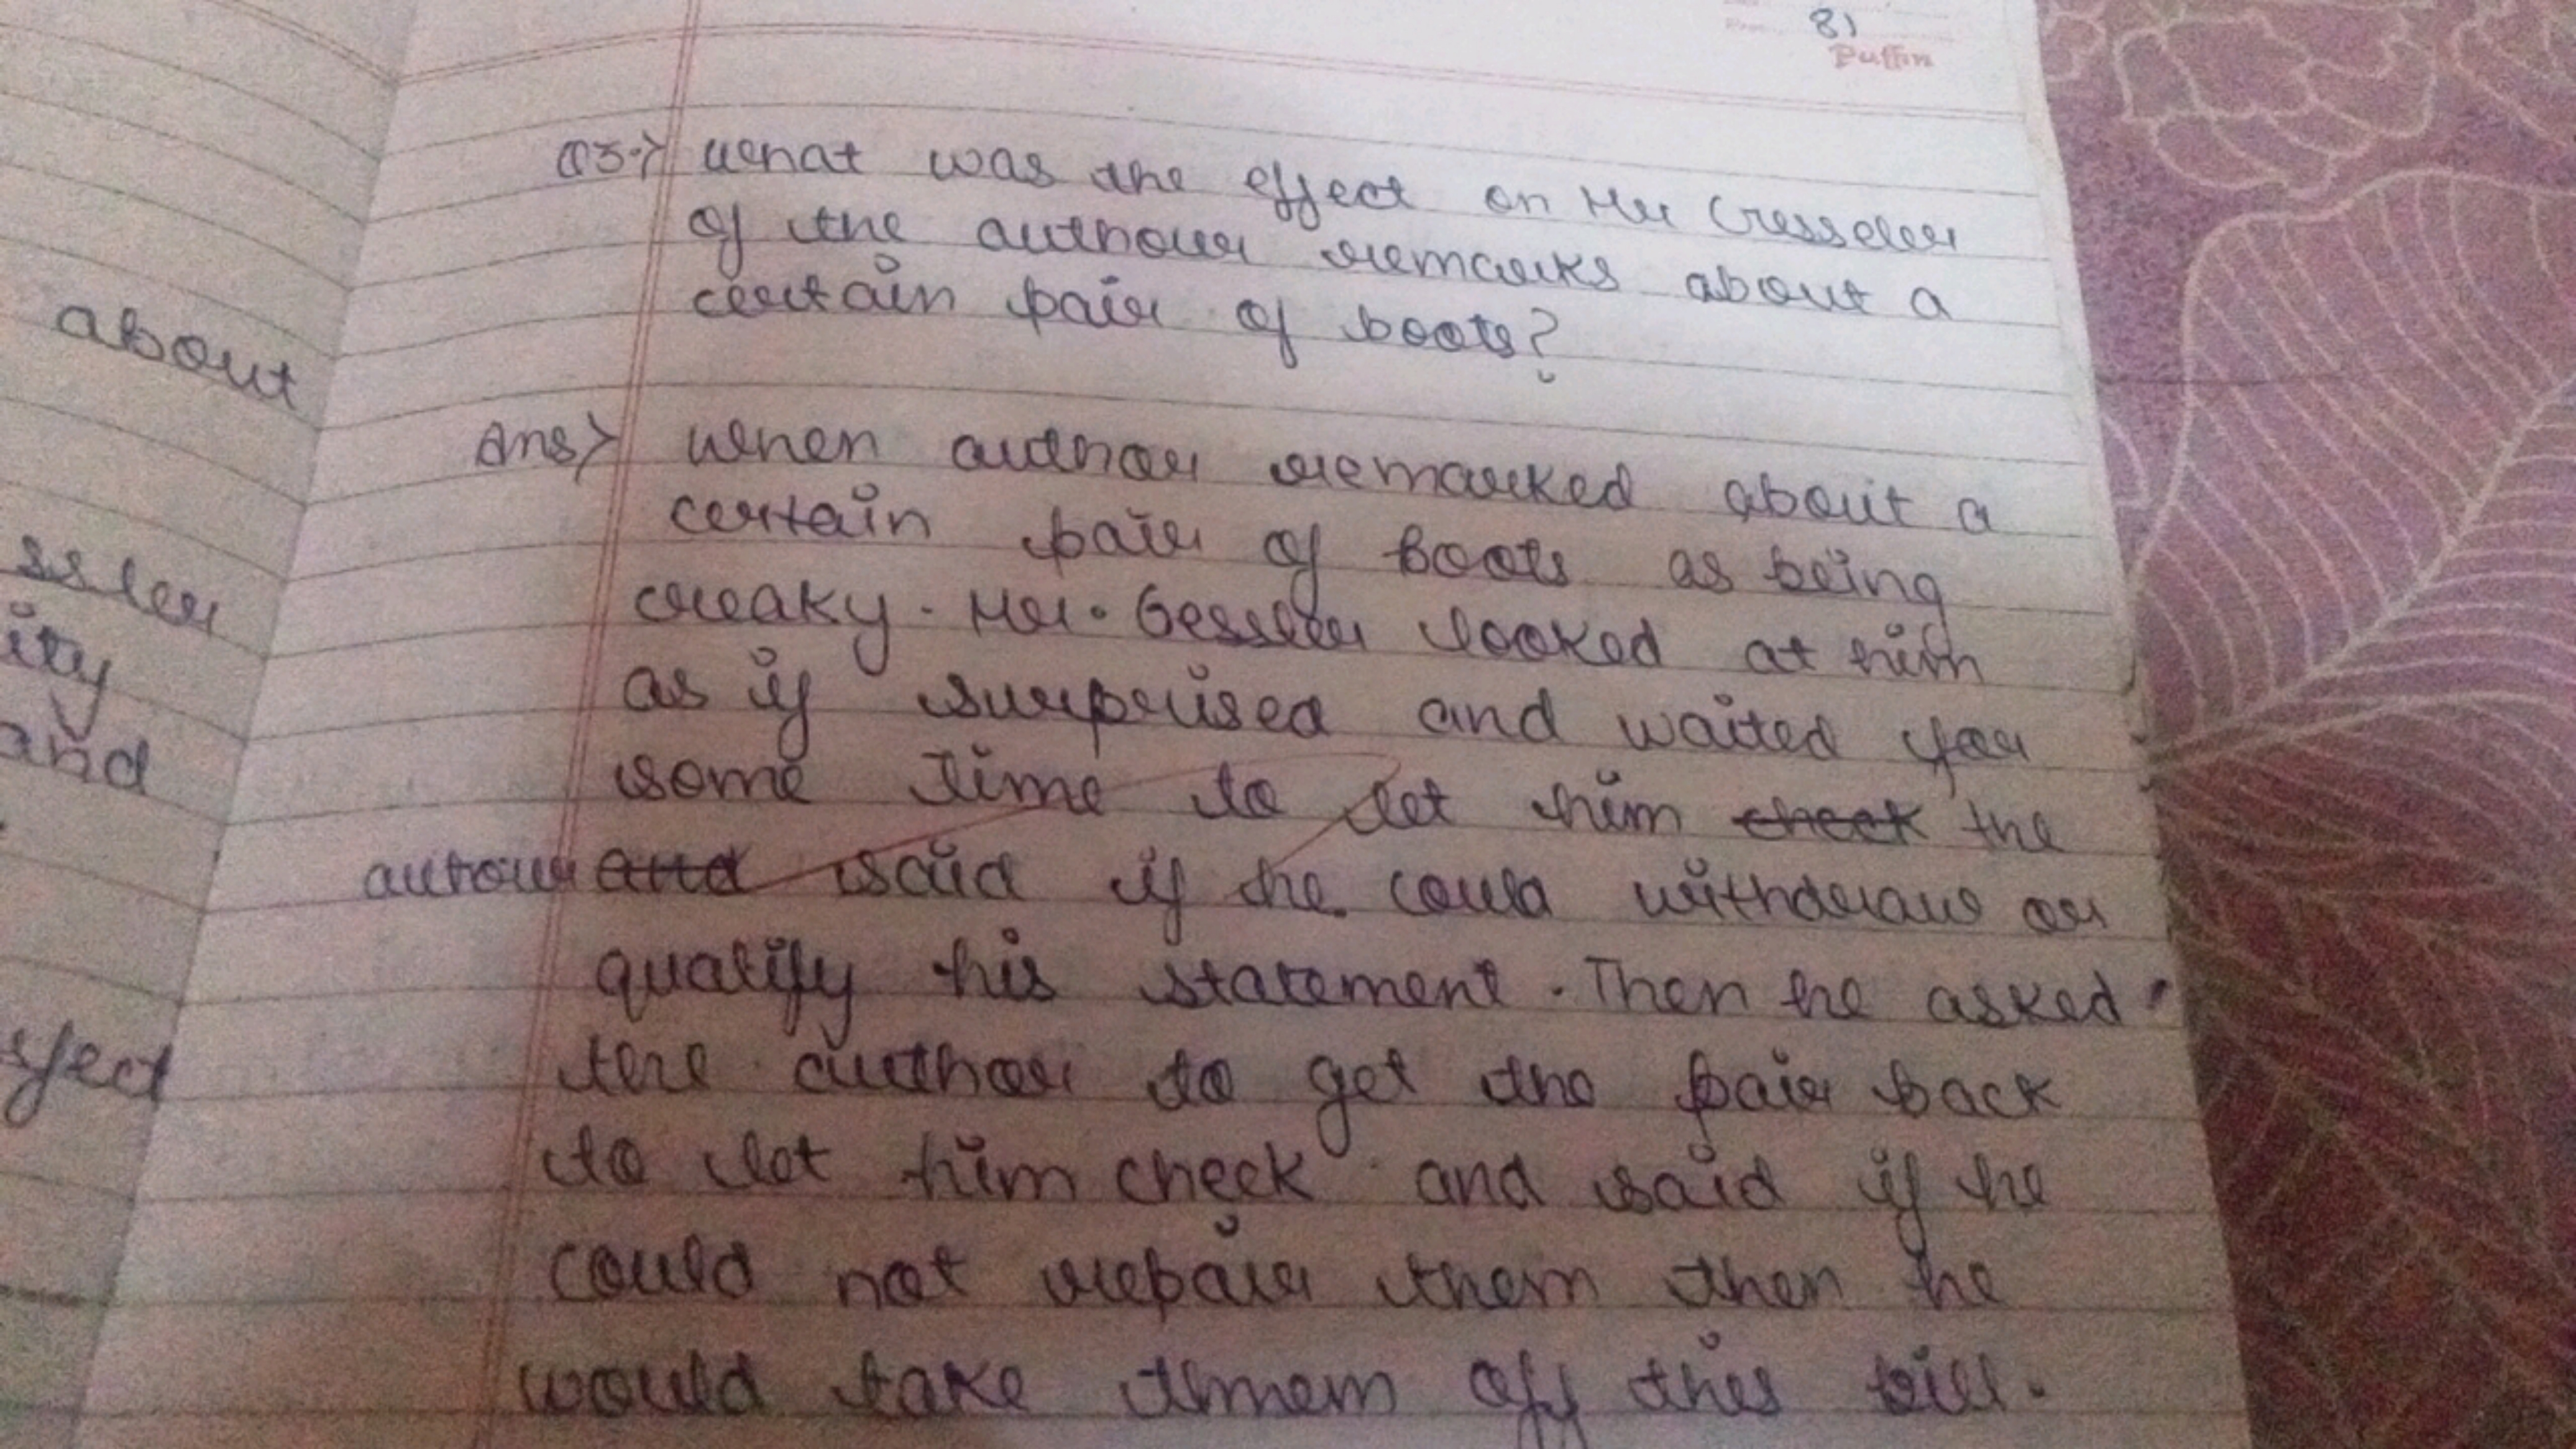 81
Puffin
Q3.> What was the effect on Mr Gesseler
of the authour remarks about a
certain pair of boots?
Ans> When author remarked about a
certain pair of boots as being
creaky. Mr. Gessler looked at him
as if surprised and waited for
some time to let him check the
autour and said if he could withdraw or
qualify his statement. Then he asked
the author to get the pair back
to let him check and said if he
could not repair them then he
would take them off this bill.
about
ssler
ity
and